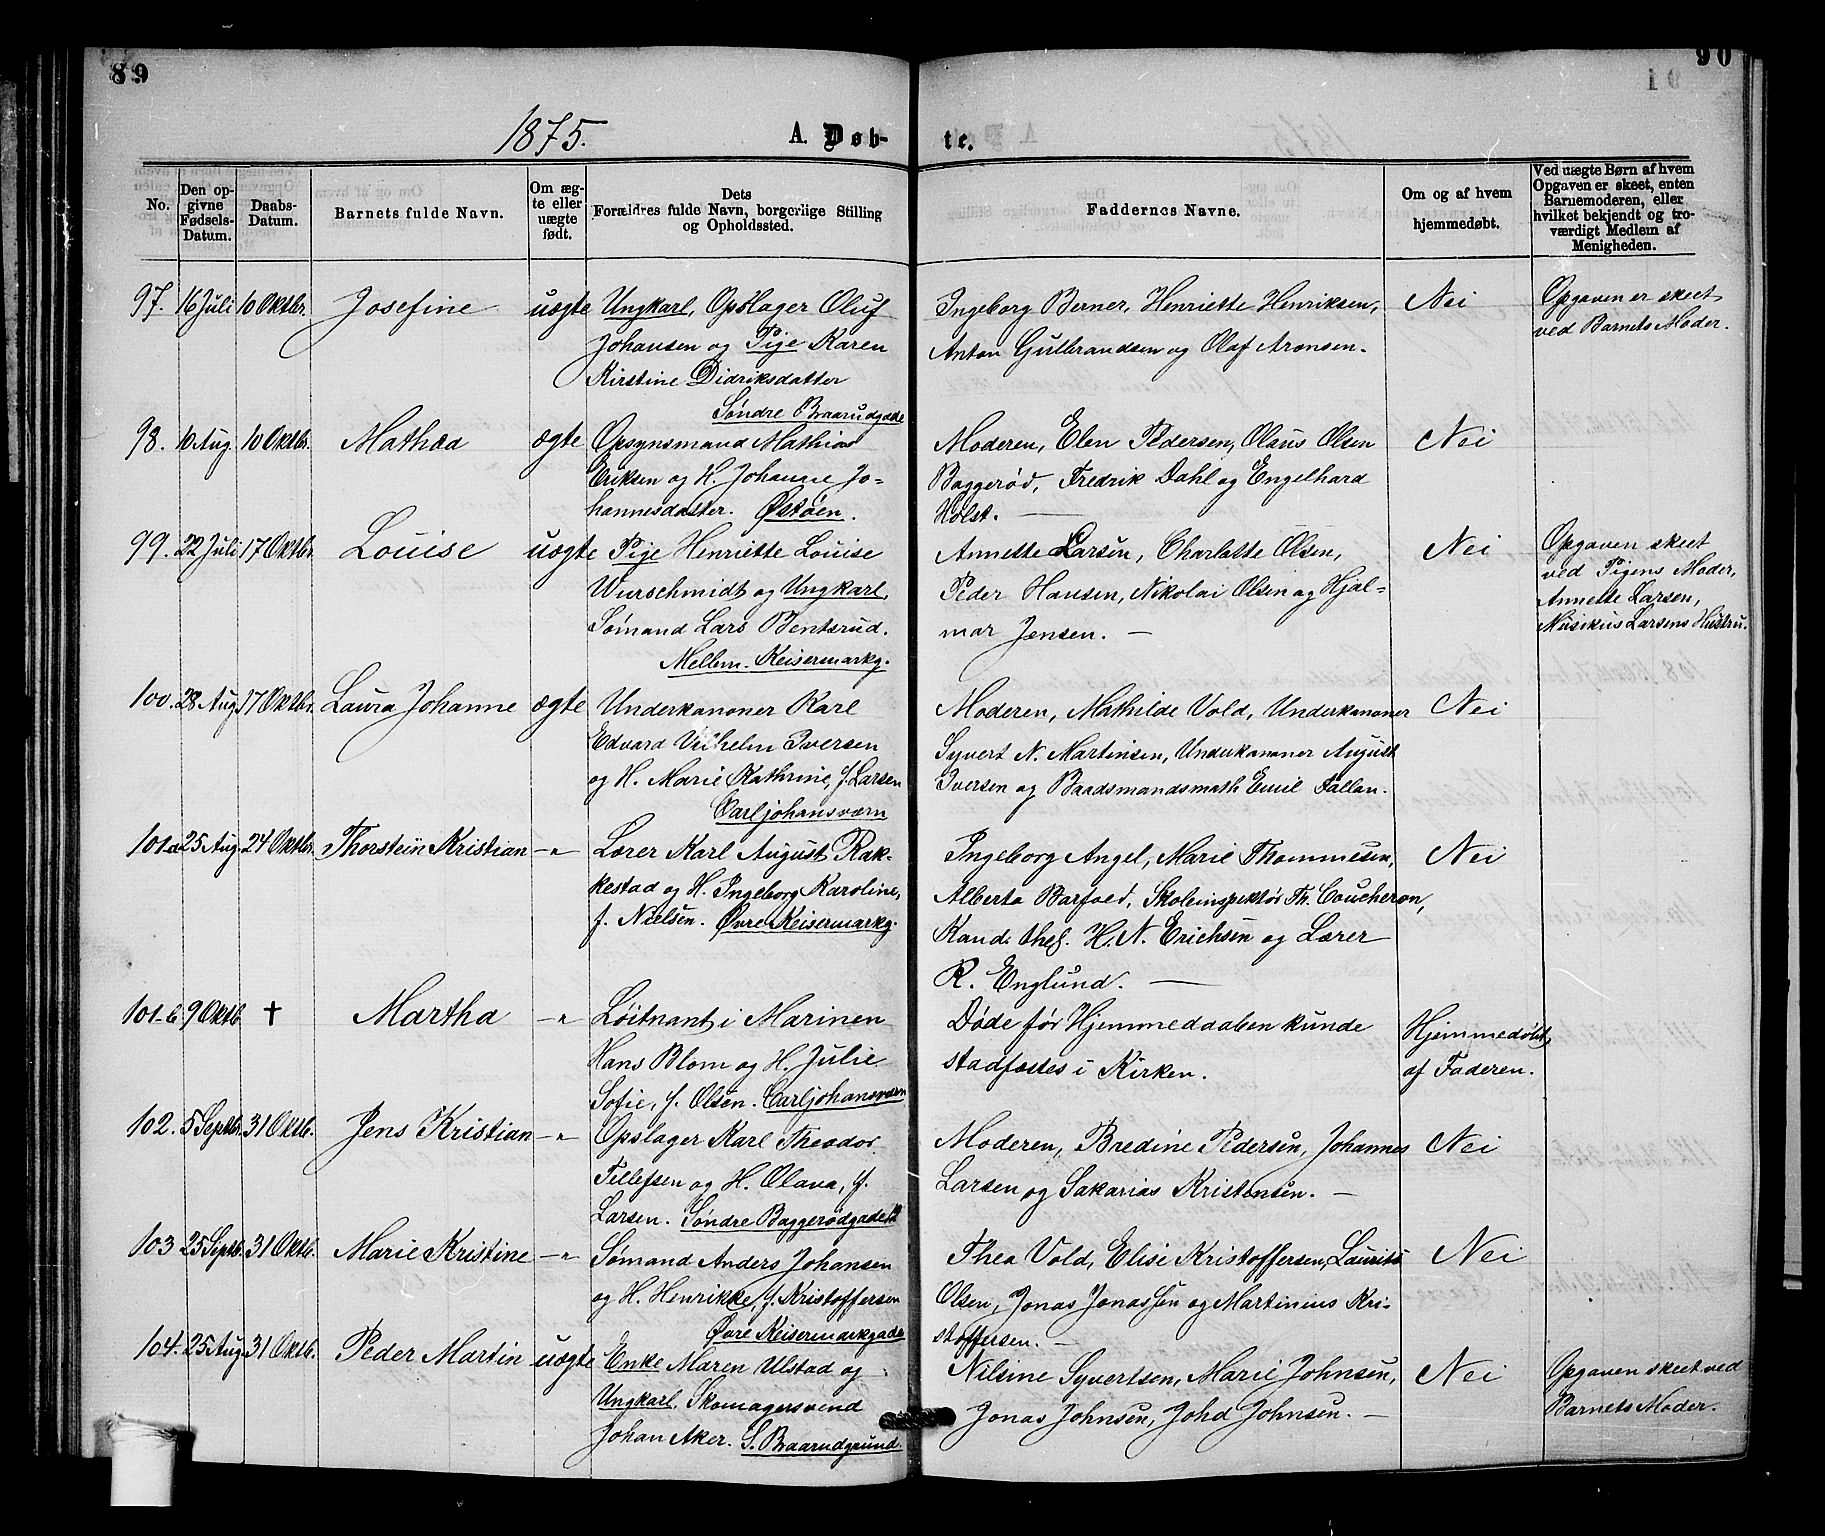 89
90
1875.
A. Døb-
te.
No.
Den op-
givne
Fødsels-
Datum.
Daabs-
Datum.
Barnets fulde Navn.
Om æg-
te eller
uægte
født.
Dets
Forældres fulde Navn, borgerlige Stilling
og Opholdssted.
Faddernes Navne.
Om og af hvem
hjemmedøbt.
Ved uægte Børn af hvem
Opgaven er skeet, enten
Barnemoderen, eller
hvilket bekjendt og tro-
værdigt Medlem af
Menigheden.
97. 16 Juli 10 Oktbr. Josefine uægte Ungkarl, Opslager Oluf
Johansen og Pige Karen
Kirstine Didriksdatter
Søndre Braarudgade
Ingeborg Berner, Henriette Henriksen,
Anton Gulbrandsen og Olaf Aronsen.
Nei
Opgaven er skeet
ved Barnets Moder.
98. 10 Aug. 10 Oktbr. Mathea ægte Opsynsmand Mathias
Eriksen og H. Johanne Jo-
hannesdatter. Østøen.
Moderen, Elen Pedersen, Olaus Olsen
Baggerød, Fredrik Dahl og Engelhard
Holst. —
Nei
99. 22 Juli 17 Oktbr. Louise uægte Pige Henriette Louise
Wurschmidt og Ungkarl,
Sømand Lars Bentsrud.
Mellem-Keisermarkg.
Annette Larsen, Charlotte Olsen,
Peder Hansen, Nikolai Olsen og Hjal-
mar Jensen. —
Nei
Opgaven skeet
ved Pigens Moder,
Annette Larsen,
Musikus Larsens Hustru.
100. 28 Aug. 17 Oktbr. Laura Johanne ægte Underkanoner Karl
Edvard Vilhelm Iversen
og H. Marie Kathrine, f. Larsen
Carljohansværn
Moderen, Mathilde Vold, Underkanoner
Syvert N. Martinsen, Underkanoner August
Iversen og Baadsmandsmath Emil Fallan.
Nei
101a 25 Aug. 24 Oktbr. Thorstein Kristian —"— Lærer Karl August Rak-
kestad og H. Ingeborg Karoline,
f. Nielsen. Øvre Keisermarkg.
Ingeborg Angel, Marie Thommesen,
Alberta Barfoed, Skoleinspektør Th. Coucheron,
Kand. theol. H. N. Erichsen og Lærer
R. Englund. —
Nei
101-b 9 Oktb. † Martha —"— Løitnant i Marinen
Hans Blom og H. Julie
Sofie, f. Olsen. Carljohansværn
Døde før Hjemmedaaben kunde
stadfæstes i Kirken.
Hjemmedøbt
af Faderen.
102. 5 Septbr. 31 Oktb. Jens Kristian —"— Opslager Karl Theodor
Tellefsen og H. Olava, f.
Larsen. Søndre Baggerødgade
Moderen, Bredine Pedersen, Johannes
Larsen og Sakarias Kristensen. —
Nei
103 25 Septb. 31 Oktb. Marie Kristine —"— Sømand Anders Johansen
og H. Henrikke, f. Kristoffersen
Øvre Keisermarkgade
Thea Vold, Elise Kristoffersen, Laurits
Olsen, Jonas Jonassen og Martinius Kri-
stoffersen. —
Nei
104. 25 Aug. 31 Oktb. Peder Martin uægte Enke Maren Ulstad og
Ungkarl, Skomagersvend
Johan Aker. S. Braarudgrund.
Nilsine Syvertsen, Marie Johnsen,
Jonas Johnsen, Johd Johnsen. —
Nei
Opgaven skeet ved
Barnets Moder.